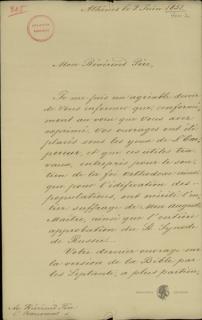 Athènes le 9 Juin 1851
Mon Révérend Père,
Je me fais un agréable devoir
de Vous informer que, conformé-
ment au vœu que Vous avez
exprimé, Vos ouvrages ont été
placés sous les yeux de l'Em-
pereur, et que ces utiles tra-
vaux, entrepris pour le sou-
tien de la foi orthodoxe ainsi
que pour l'édification des
populations, ont mérité l'en-
tier suffrage de Mon Auguste
Maître, ainsi que l'entière
approbation du St Synode
de Russie.
Votre dernier ouvrage sur
la version de la Bible par
les Septante, a plus particu-
Au Révérend Père